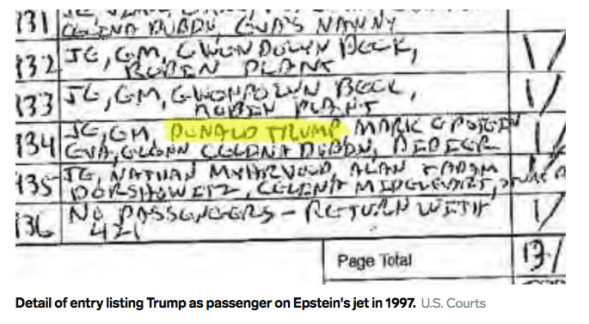 131
CELINA DUBIN, EVA'S NANNY
132 JE, GM, GWENDOLYN BECK,
133 JE, GM, GWENDOLYN BECK,
134 JE, GM, DONALD TRUMP, MARK EPSTEIN
EVA, GLENN CELINA DUBIN, DIDIER
135 JE, NATHAN MYHRVOLD, ALAN + ADAM
DERSHOWITZ, CELINA MIDELFART,
136 NO PASSENGERS - RETURN WITH
421
Page Total
Detail of entry listing Trump as passenger on Epstein's jet in 1997. U.S. Courts